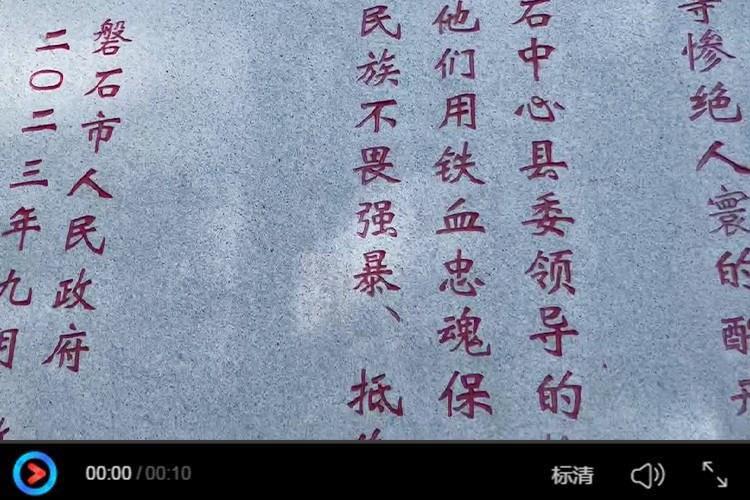 惨绝人寰的酷
石中心县委领导的
他们用铁血忠魂保
民族不畏强暴、抵
磐石市人民政府
二〇二三年九月
00:00 / 00:10 标清